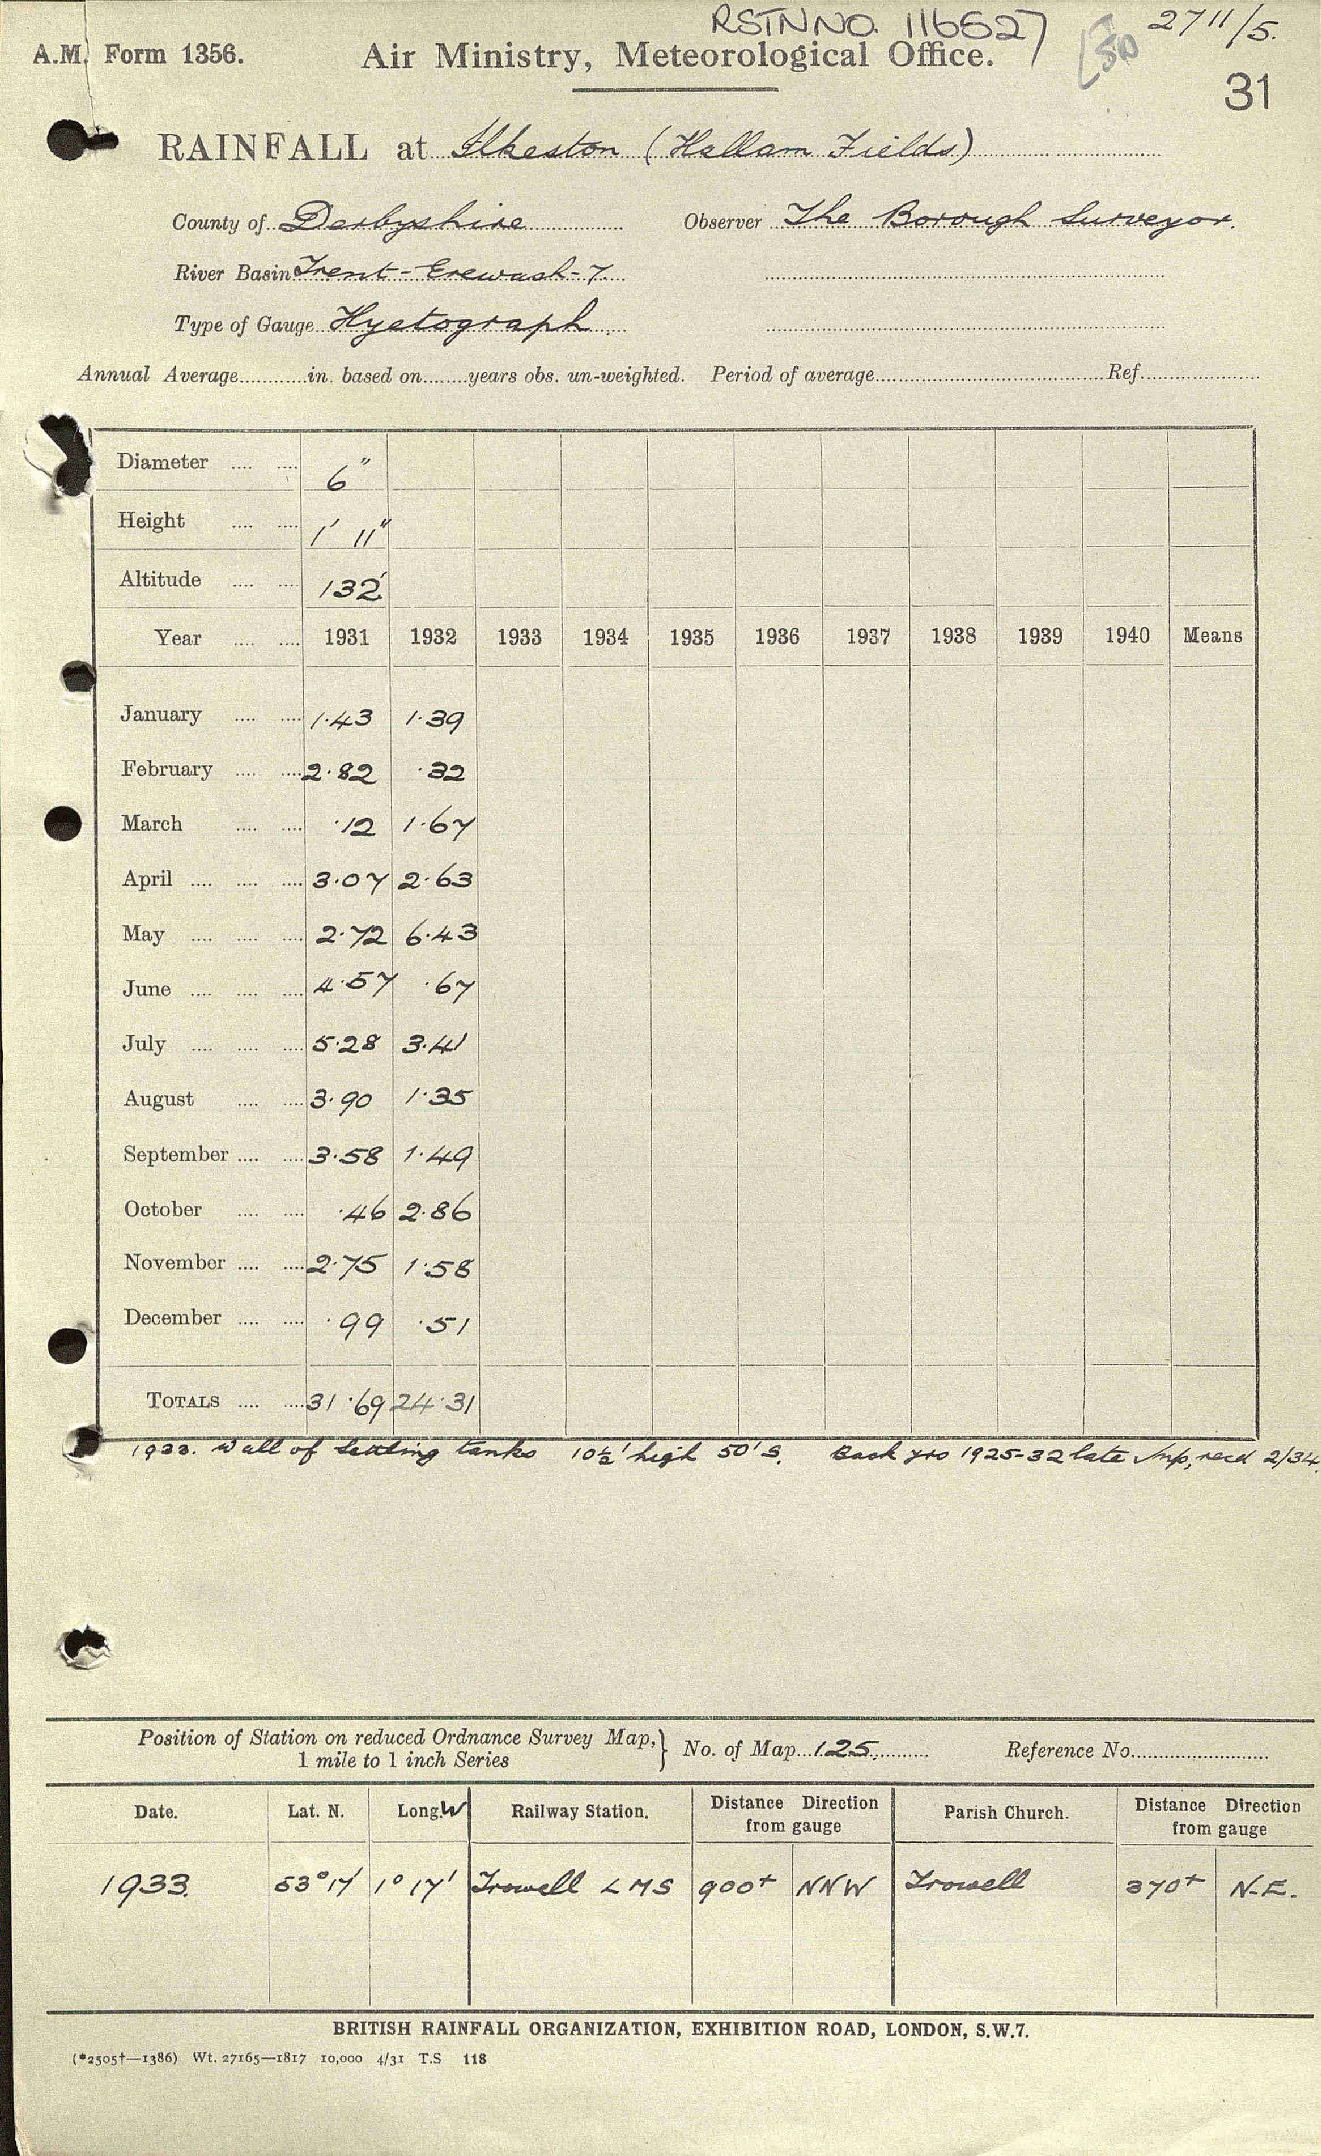 RSTN NO. 116527
2711/5.
50
A.M. Form 1356.
Air Ministry, Meteorological Office.
31
RAINFALL at Ilkeston (Hallam Fields)
County of Derbyshire Observer The Borough Surveyor.
River Basin Trent-Erewash-7
Type of Gauge Hyetograph
Annual Average............in. based on........years obs. un-weighted. Period of average............Ref............
Diameter .... .... 6"
Height .... .... 1' 11"
Altitude .... .... 132'
Year .... .... 1931 1932 1933 1934 1935 1936 1937 1938 1939 1940 Means
January .... .... 1.43 1.39
February .... .... 2.82 .32
March .... .... .12 1.67
April .... .... .... 3.07 2.63
May .... .... .... 2.72 6.43
June .... .... .... 4.57 .67
July .... .... .... 5.28 3.41
August .... .... 3.90 1.35
September .... .... 3.58 1.49
October .... .... .46 2.86
November .... .... 2.75 1.58
December .... .... .99 .51
TOTALS .... .... 31.69 24.31
1933. Wall of settling tanks 10½' high 50' S. Back yrs 1925-32 late recd 2/34
Position of Station on reduced Ordnance Survey Map, } No. of Map 125 Reference No.
1 mile to 1 inch Series
Date. Lat. N. Long. W Railway Station. Distance Direction from gauge Parish Church. Distance Direction from gauge
1933. 53° 1° 17' Trowell LMS 900+ NNW Trowell 370+ N.E.
BRITISH RAINFALL ORGANIZATION, EXHIBITION ROAD, LONDON, S.W.7.
(*2505†—1386) Wt. 27165—1817 10,000 4/31 T.S 118